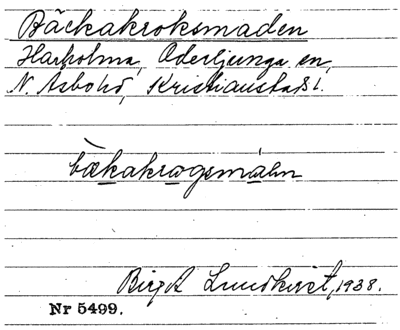 Bäckakroksmaden
Harholma, Oderljunga en,
N. Åsbo hd, Kristianstads l.
bækakrogsmáln
Birgit Lundkvist, 1938.
Nr 5499.